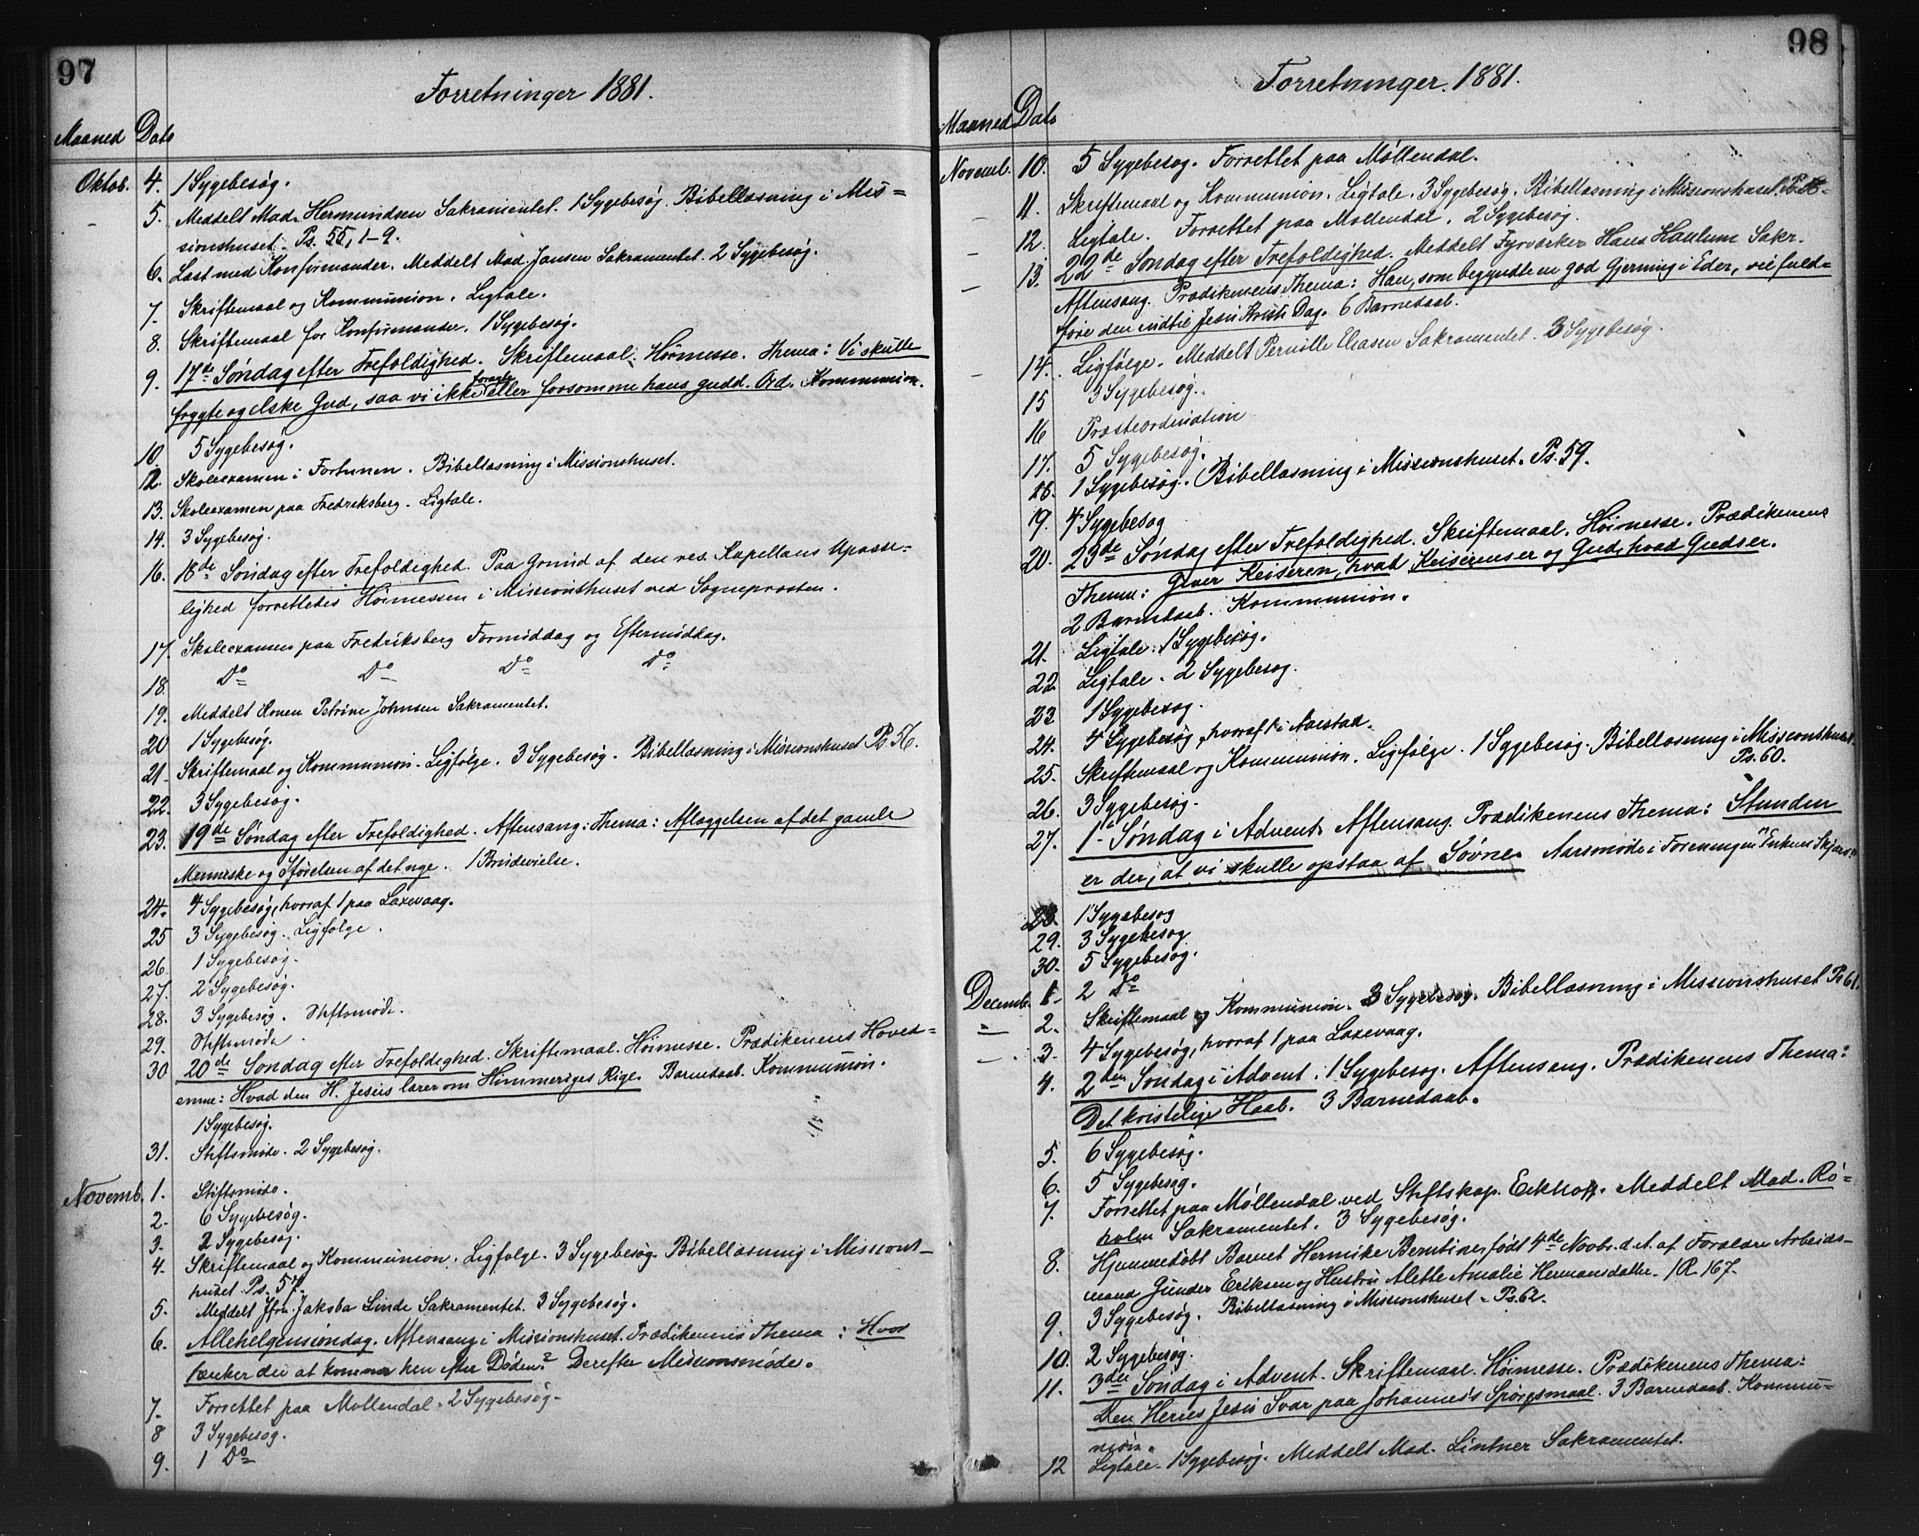 97
Forretninger 1881.
Maaned Dato
Oktob. 4. 1 Sygebesøg.
5. Meddelt Mad. Hermundsen Sakramentet. 1 Sygebesøg. Bibellæsning i Mis=
sionshuset. Ps. 55, 1-9.
6. Læst med Konfirmander. Meddelt Mad. Jansen Sakramentet. 2 Sygebesøg.
7. Skriftemaal og Kommunion. Ligtale.
8. Skriftemaal for Konfirmander. 1 Sygebesøg.
9. 17de Søndag efter Trefoldighed. Skriftemaal. Høimesse. Thema: Vi skulle
frygte og elske Gud, saa vi ikke foragte eller forsømme hans gudd. Ord. Kommunion.
10. 5 Sygebesøg.
12. Skoleexamen i Fortunen. Bibellæsning i Missionshuset.
13. Skoleexamen paa Fredriksberg. Ligtale.
14. 3 Sygebesøg.
16. 18de Søndag efter Trefoldighed. Paa Grund af den res. Kapellans Upasse=
lighed forrettedes Høimessen i Missionshuset ved Sogneprœsten.
17. Skoleexamen paa Fredriksberg Formiddag og Eftermiddag.
18. Do Do Do Do
19. Meddelt Konen Petrine Johnsen Sakramentet.
20 1 Sygebesøg.
21. Skriftemaal og Kommunion. Ligfølge. 3 Sygebesøg. Bibellæsning i Missionshuset Ps. 56.
22. 3 Sygebesøg.
23. 19de Søndag efter Trefoldighed. Aftensang: Thema: Aflæggelsen af det gamle
Menneske og Iførelsen af det nye. 1 Brudevielse.
24. 4 Sygebesøg, hvoraf 1 paa Laxevaag.
25 3 Sygebesøg. Ligfølge.
26. 1 Sygebesøg.
27. 2 Sygebesøg.
28. 3 Sygebesøg. Stiftsmøde.
29. Stiftsmøde.
30 20de Søndag efter Trefoldighed. Skriftemaal. Høimesse. Prædikenens Hoved=
emne: Hvad den H. Jesus lærer om Himmeriges Rige. Barnedaab. Kommunion.
1 Sygebesøg.
31. Stiftsmøde. 2 Sygebesøg.
Novemb. 1. Stiftsmøde.
2. 6 Sygebesøg.
3. 2 Sygebesøg.
4. Skriftemaal og Kommunion. Ligfølge. 3 Sygebesøg. Bibellæsning i Missions-
huset Ps. 57.
5. Meddelt Jfru Jakoba Linde Sakramentet. 3 Sygebesøg.
6. Allehelgenssøndag. Aftensang i Missionshuset. Prædikenens Thema: Hvor
tænker du at komme hen efter Døden? Derefter Missionsmøde.
7. Forrettet paa Møllendal. 2 Sygebesøg.
8 3 Sygebesøg.
9. 1 Do
98
Forretninger. 1881.
Maaned Dato
Novemb. 10. 5 Sygebesøg. Forrettet paa Møllendal.
11. Skriftemaal og Kommunion. Ligtale. 3 Sygebesøg. Bibellæsning i Missionshuset.
12. Ligtale. Forrettet paa Møllendal. 2 Sygebesøg.
13. 22de Søndag efter Trefoldighed. Meddelt Fyrværker Hans Haulum Sakr.
Aftensang. Prædikenens Thema: Han, som begyndte en god Gjerning i Eder, vil fuld=
føre den indtil Jesu Kristi Dag. 6 Barnedaab.
14. Ligfølge. Meddelt Pernille Eliasen Sakramentet. 3 Sygebesøg.
15 3 Sygebesøg.
16 Præsteordination
17. 5 Sygebesøg.
18. 1 Sygebesøg. Bibellæsning i Missionshuset. Ps. 59.
19. 4 Sygebesøg
20. 23de Søndag efter Trefoldighed. Skriftemaal. Høimesse. Prædikenens
Thema: Giver Keiseren, hvad Keiserens er og Gud, hvad Guds er.
2 Barnedaab. Kommunion.
21. Ligtale. 1 Sygebesøg.
22 Ligtale. 2 Sygebesøg.
23 1 Sygebesøg.
24. 4 Sygebesøg, hvoraf 1 i Aarstad.
25. Skriftemaal og Kommunion. Ligfølge. 1 Sygebesøg. Bibellæsning i Missionshuset.
Ps. 60.
26. 3 Sygebesøg.
27. 1. Søndag i Advent. Aftensang. Prædikenens Thema: Stunden
er der, at vi skulle opstaa af Søvne. Aarsmøde i Foreningen "Enkens Skjærv"
28. 1 Sygebesøg
29. 3 Sygebesøg
30. 5 Sygebesøg.
Decemb. 1. 2 Do
2. Skriftemaal og Kommunion. 3 Sygebesøg. Bibellæsning i Missionshuset Ps 61.
3. 4 Sygebesøg, hvoraf 1 paa Laxevaag.
4. 2den Søndag i Advent. 1 Sygebesøg. Aftensang. Prædikenens Thema:
Det kristelige Haab. 3 Barnedaab.
5. 6 Sygebesøg.
6. 5 Sygebesøg.
7. Forrettet paa Møllendal ved Stiftskap. Eckhoff. Meddelt Mad. Rø=
holm Sakramentet. 3 Sygebesøg.
8. Hjemmedøbt Barnet Hermine Berntine, født 4de Novbr. d. A. af Forældre Arbeids-
mand Gunder Eriksen og Hustru Alette Amalie Hermansdatter. 1 R. 167.
9. 3 Sygebesøg. Bibellæsning i Missionshuset. Ps. 62.
10. 2 Sygebesøg.
11. 3die Søndag i Advent. Skriftemaal. Høimesse. Prædikenens Thema:
Den Herres Jesu Svar paa Johannes's Spørgsmaal. 3 Barnedaab. Kommu-
nion.
12 Ligtale. 1 Sygebesøg. Meddelt Mad. Lintner Sakramentet.